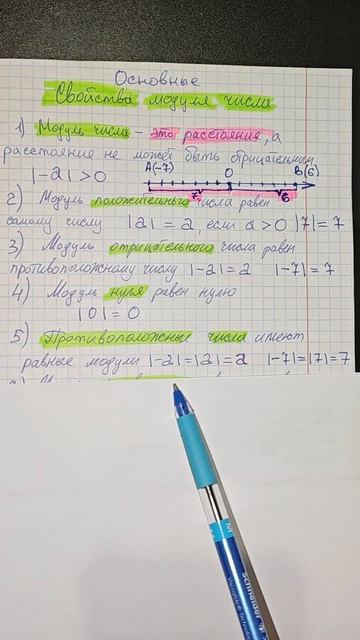 Основные
Свойства модуля числа
1) Модуль числа - это расстояние, а
расстояние не может быть отрицательным
|-a| > 0
A(-7) 0 B(6)
7 6
2) Модуль положительного числа равен
самому числу |a| = a, если a > 0 |7| = 7
3) Модуль отрицательного числа равен
противоположному числу |-a| = a |-7| = 7
4) Модуль нуля равен нулю
|0| = 0
5) Противоположные числа имеют
равные модули |-a|=|a|=a |-7|=|7|=7
schneider